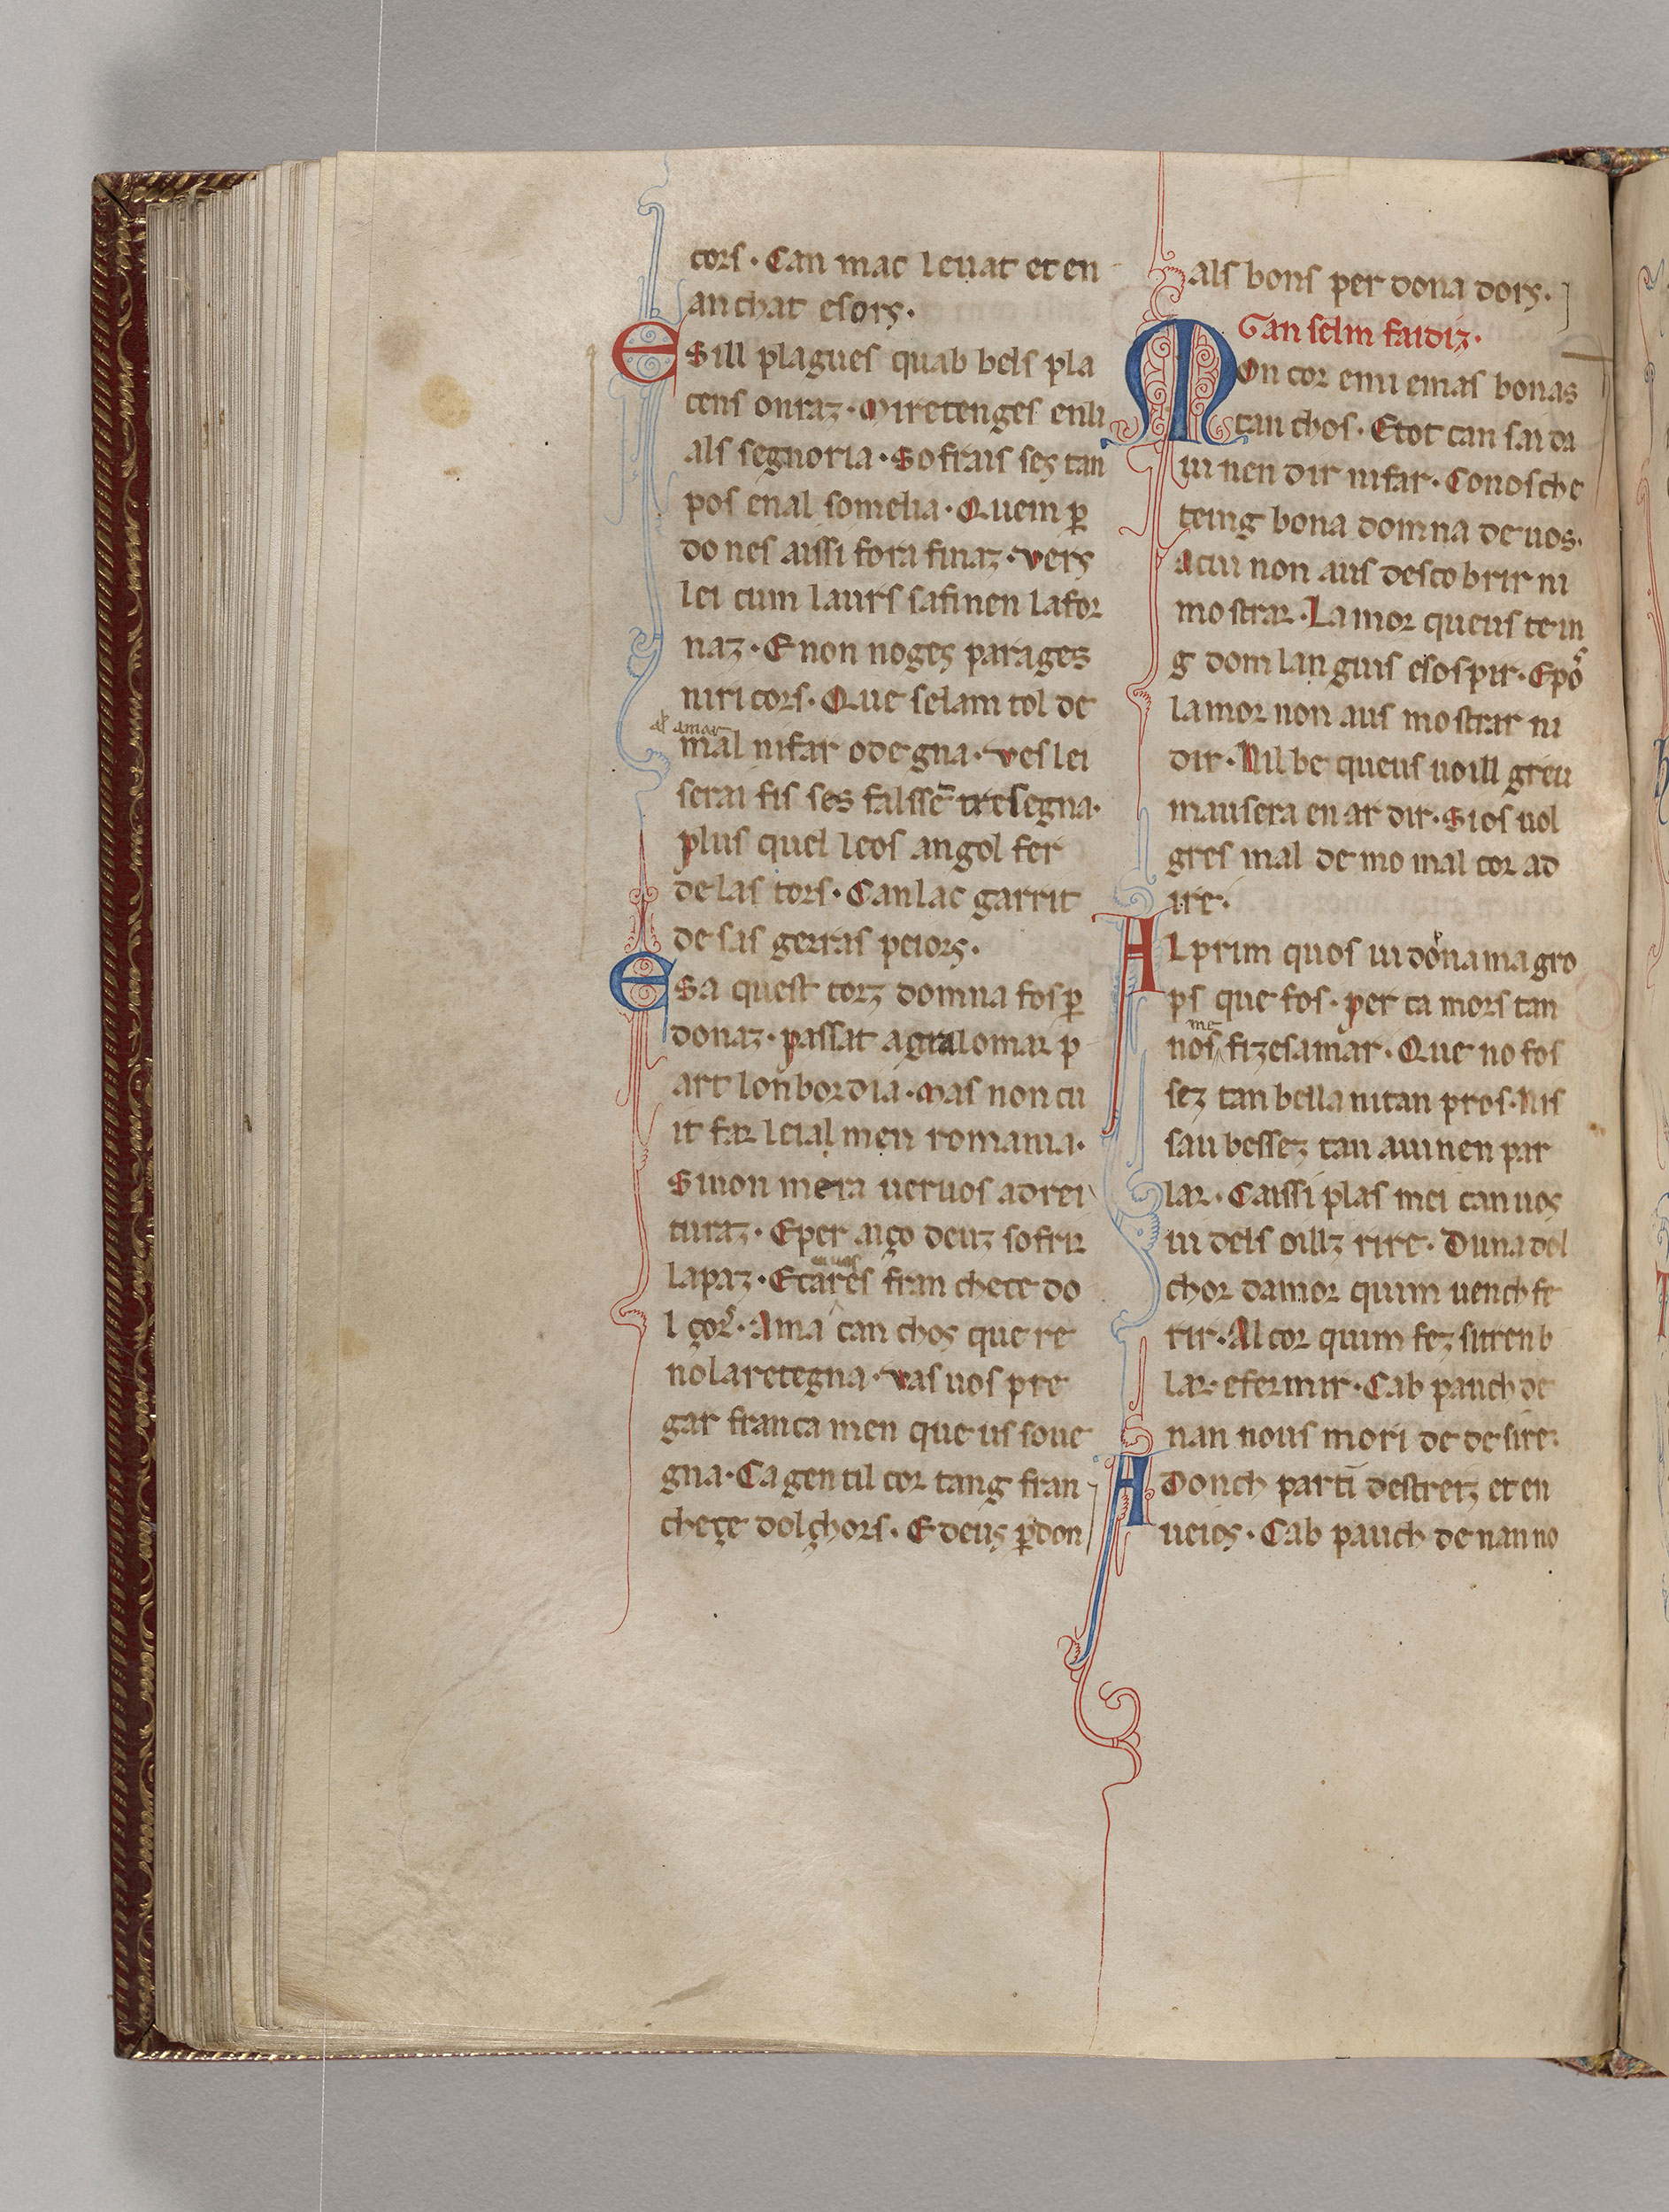 cors · Can mac leuat et en
anchat esors ·
ESill plagues quab bels pla
cens onraz · Miretenges enli
als segnoria · Sofrais ses tan
pos enal somelia · Quem ꝑ
dones aissi fora finaz · vers
lei cum laurs safinen lafor
naz · E non noges parages
niricors · Que selam tol de
al amar
mal nifar odegna · ves lei
serai fis ses falssē segna ·
plus quel leos angol fer
delas tors · Canlac garrit
de sas gerras peiors ·
ESa quest corz domna fos ꝑ
donaz · passat agralomar p
art lonbordia · mas non cu
it far leialmen romania ·
Sinon mera ueruos adrei
turaz · Eper aiço deuz sofrir
lapaz · E fran chece do
l çor · Ama can chos que re
nolaretegna · vas uos pre
gar franca men que us soue
gna · Ca gen til cor tang fran
cheçe dolçhors · E deus ꝑdon
als bons per dona dors ·
Gan selm faidiz ·
Mon cor emi emas bonas
can chos · Etot can sai da
ui nen dir nifar · Conosche
teing bona domna de uos ·
Acui non aus desco brir ni
mostrar · Lamor queus tein
g dom languis esospir · Epos
lamor non aus mostrar ni
dir · Nil be queus uoill greu
mausera en ar dir · Sios uol
gres mal de mo mal cor ad
ire ·
AL prim quos ui dona ma gro
ps que fos · per ca mors tan
me
nos fizesamar · Que no fos
sez tan bella nitan pros · Nis
saubessez tan auinen par
lar · Caissi plas mei can uos
ui dels oillz rire · Duna dol
chor damor quim uench fe
rir · Al cor quim fez sitrenb
lar efermir · Cab pauch de
nan nous mori de desire ·
ADonch parti destrerz et en
ueios · Cab pauch de nan no